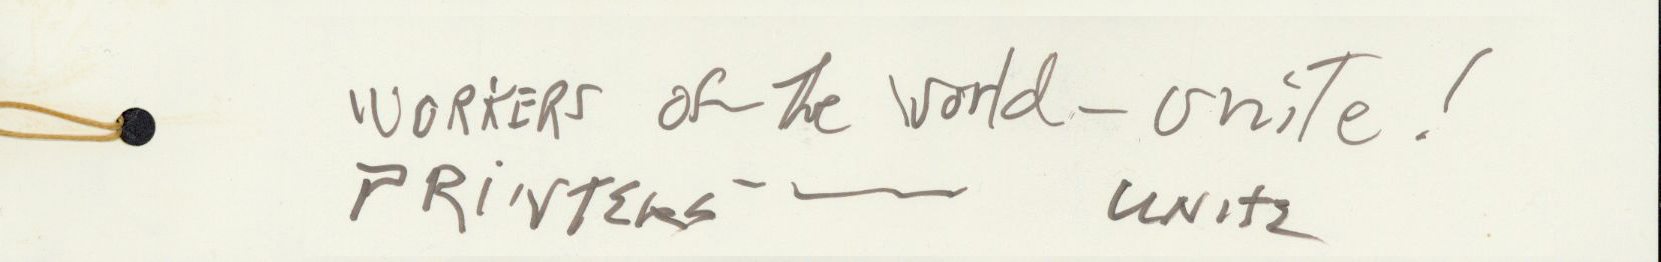 WORKERS of the world - unite!
PRiNTERS - — UNitE